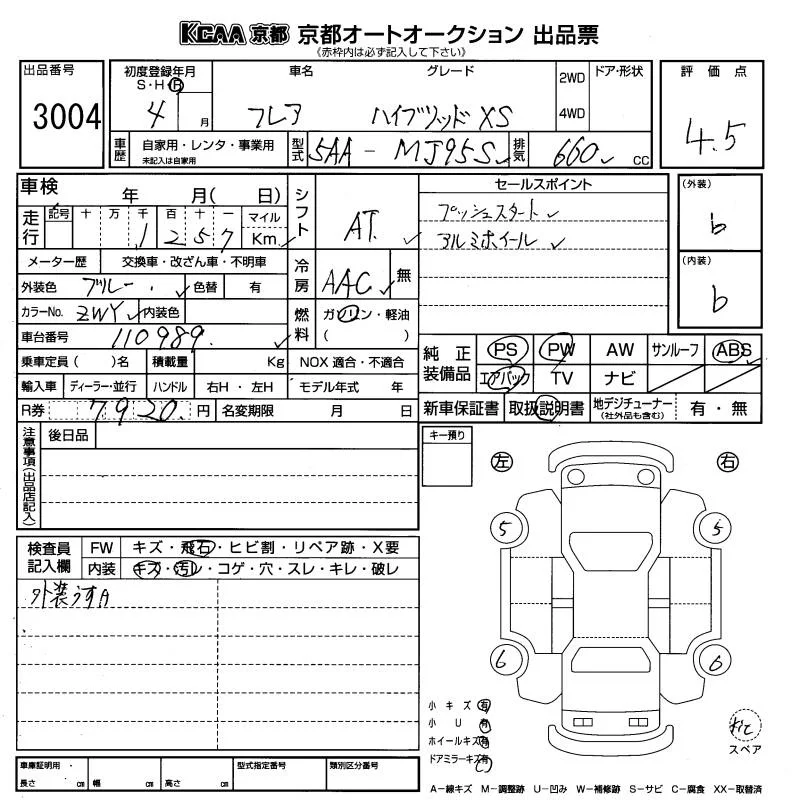 KCAA 京都 京都オートオークション 出品票
《赤枠内は必ず記入して下さい》
出品番号 3004
初度登録年月 S・H・R 4 月
車名 グレード
フレア ハイブリッド XS
2WD 4WD
ドア・形状
車歴 自家用・レンタ・事業用 未記入は自家用
型式 5AA - MJ95S
排気 660 cc
評価点 4.5
車検 年 月( 日)
走行 記号 十 万 千 百 十 一 マイル
1257 Km
シフト AT
メーター歴 交換車・改ざん車・不明車
外装色 ブルー 色替 有
冷房 AAC 無
カラーNo. ZWY 内装色
燃料 ガソリン・軽油 ( )
車台番号 110989
乗車定員 ( )名 積載量 Kg NOX 適合・不適合
輸入車 ディーラー・並行 ハンドル 右H・左H モデル年式 年
R券 7920 円 名変期限 月 日
セールスポイント
プッシュスタート
アルミホイール
(外装) b
(内装) b
純正装備品 PS PW AW サンルーフ ABS
エアバック TV ナビ
新車保証書 取扱説明書 地デジチューナー (社外品も含む) 有・無
注意事項(出品店記入)
後日品
キー預り
左 右
検査員記入欄
FW キズ・飛石・ヒビ割・リペア跡・X要
内装 キズ・汚レ・コゲ・穴・スレ・キレ・破レ
外装うすA
5 5
6 6
小キズ 有
小U 有
ホイールキズ 有
ドアミラーキズ 有
スペア
車庫証明用 長さ cm 幅 cm 高さ cm
型式指定番号 類別区分番号
A-線キズ M-調整跡 U-凹み W-補修跡 S-サビ C-腐食 XX-取替済